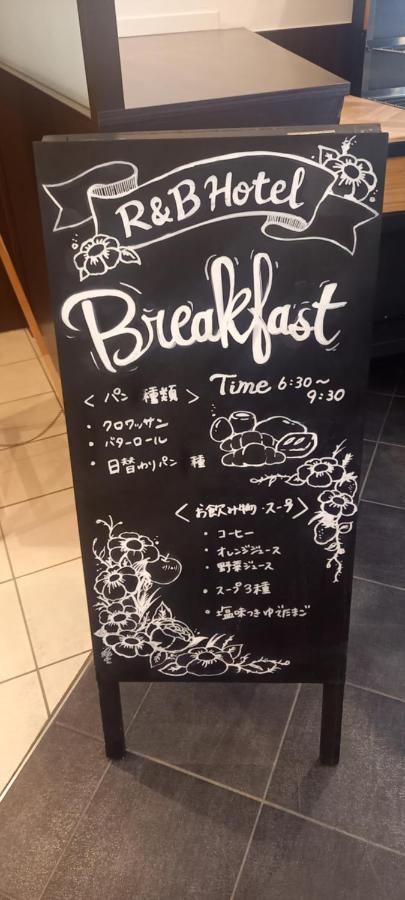 R&B Hotel
Breakfast
< パン 種類 >
Time 6:30~
9:30
・ クロワッサン
・ バターロール
・ 日替わりパン 種
< お飲み物・スープ >
・ コーヒー
・ オレンジジュース
・ 野菜ジュース
・ スープ3種
・ 塩味つきゆでたまご